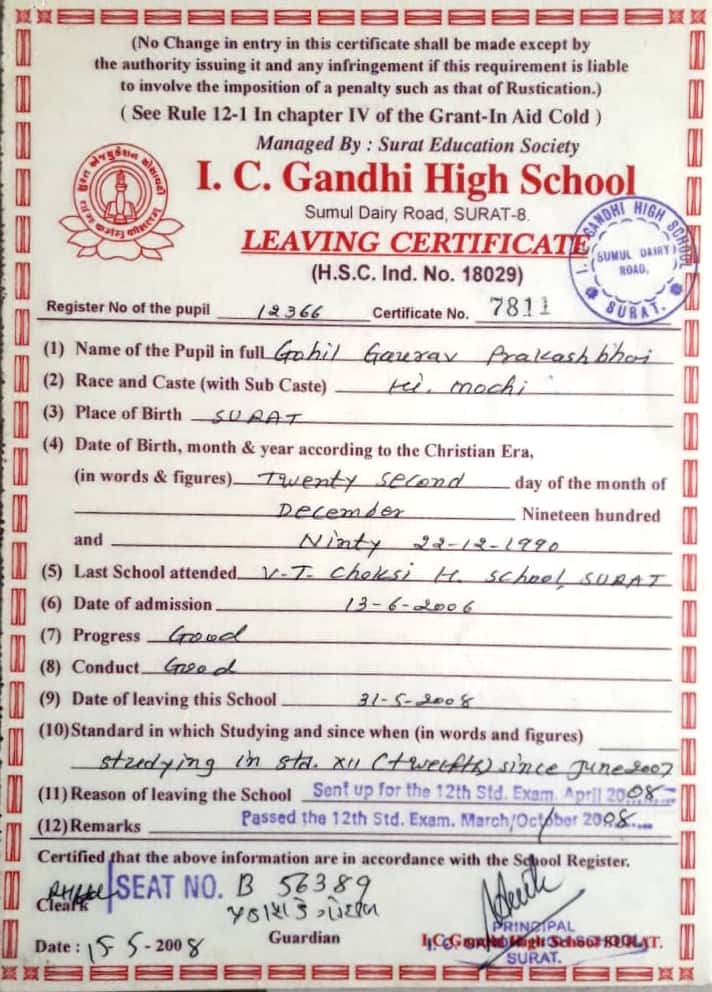 (No Change in entry in this certificate shall be made except by
the authority issuing it and any infringement if this requirement is liable
to involve the imposition of a penalty such as that of Rustication.)
( See Rule 12-1 In chapter IV of the Grant-In Aid Cold )
Managed By : Surat Education Society
I. C. Gandhi High School
Sumul Dairy Road, SURAT-8.
LEAVING CERTIFICATE
I. C. GANDHI HIGH SCHOOL
SUMUL DAIRY
ROAD,
SURAT.
(H.S.C. Ind. No. 18029)
Register No of the pupil 12366 Certificate No. 7811
(1) Name of the Pupil in full Gohil Gaurav Prakashbhai
(2) Race and Caste (with Sub Caste) Hi. mochi
(3) Place of Birth SURAT
(4) Date of Birth, month & year according to the Christian Era,
(in words & figures) Twenty second day of the month of
December Nineteen hundred
and Ninty 22-12-1990
(5) Last School attended V.T. Choksi H. School, SURAT
(6) Date of admission 13-6-2006
(7) Progress Good
(8) Conduct Good
(9) Date of leaving this School 31-5-2008
(10) Standard in which Studying and since when (in words and figures)
studying in std. XII (twelfth) since June 2007
(11) Reason of leaving the School Sent up for the 12th Std. Exam. April 2008
(12) Remarks Passed the 12th Std. Exam. March/October 2008
Certified that the above information are in accordance with the School Register.
SEAT NO. B 56389
Cleark
Guardian
PRINCIPAL
I.C.Gandhi High School SURAT.
SURAT.
Date : 15-5-2008